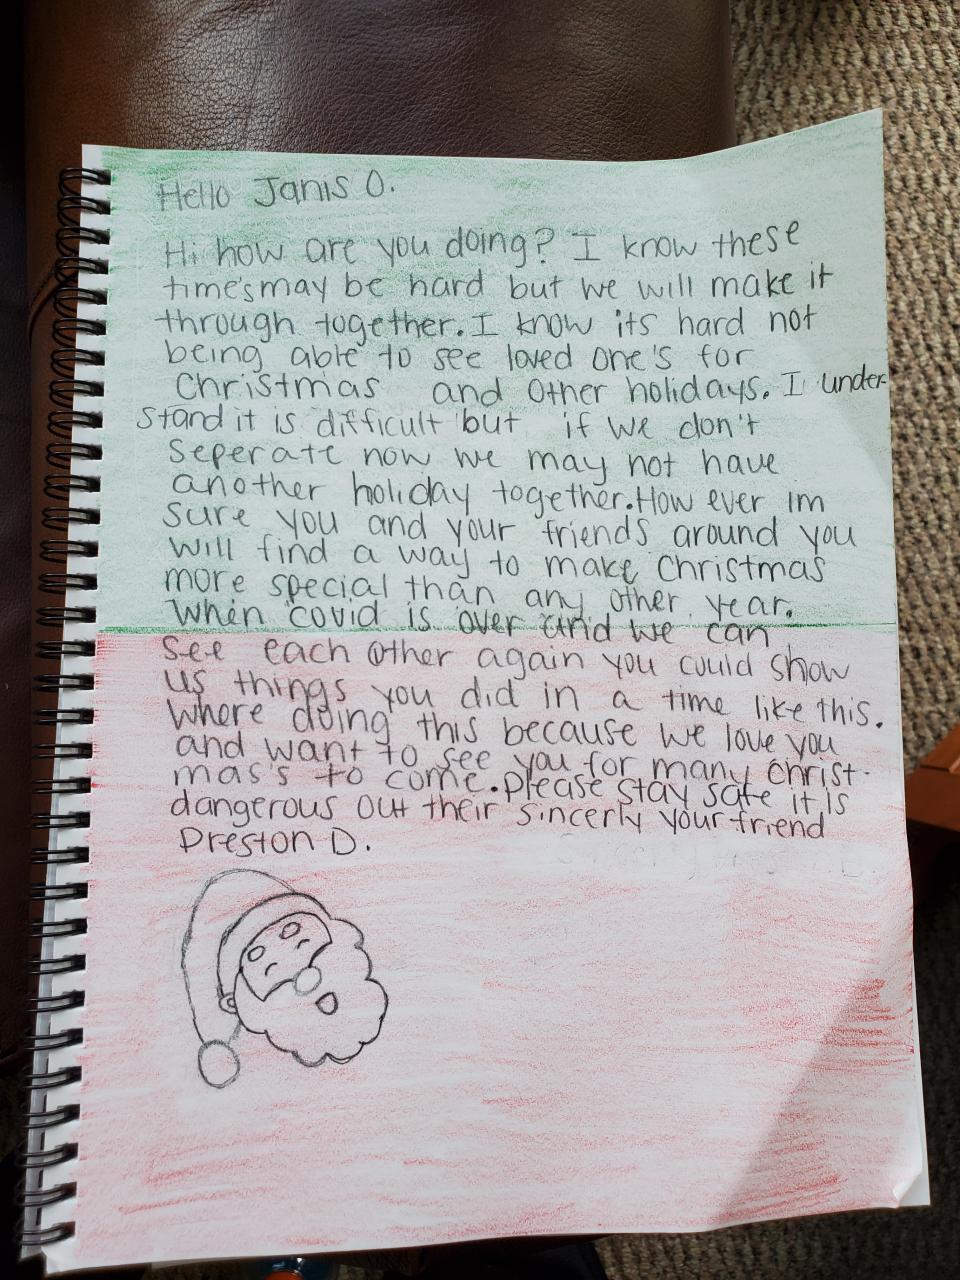 Hello Janis O.
Hi how are you doing? I know these
time's may be hard but we will make it
through together. I know its hard not
being able to see loved one's for
Christmas and other holidays. I under-
stand it is difficult but if we don't
seperate now we may not have
another holiday together. How ever im
sure you and your friends around you
will find a way to make Christmas
more special than any other year.
When covid is over and we can
see each other again you could show
us things you did in a time like this.
Where doing this because we love you
and want to see you for many christ-
mas's to come. Please stay safe it is
dangerous out their sincerly your friend
Preston D.